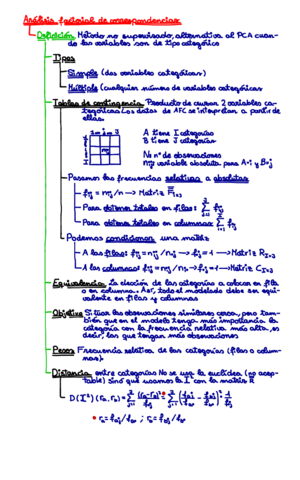 Análisis factorial de correspondencias
Definición Método no supervisado, alternativa al PCA cuan-
do las variables son de tipo categórico
Tipos
Simple (dos variables categóricas)
Múltiple (cualquier número de variables categóricas
Tablas de contingencia Producto de cruzar 2 variables ca-
tegóricas. Los datos de AFC se interpretan a partir de
ellas.
A tiene I categorías
B tiene J categorías
N: nº de observaciones
variable absoluta para A=i y B=j
Pasamos las frecuencias relativas a absolutas
→ Matriz
Para obtener totales en filas:
Para obtener totales en columnas:
Podemos condicionar una matriz
A las filas:
A las columnas:
Equivalencia La elección de las categorías a colocar en fila
o en columna. Así, todo el modelado debe ser equi-
valente en filas y columnas
Objetivo Situar las observaciones similares cerca, pero tam-
bién que en el modelo tenga más importancia la
categoría con la frecuencia relativa más alta, es
decir, las que tengan más observaciones
Pesos Frecuencia relativa de las categorías (filas o colum-
nas).
Distancia entre categorías No se usa la euclídea (no acep-
table) sino que usamos la
con la matriz R